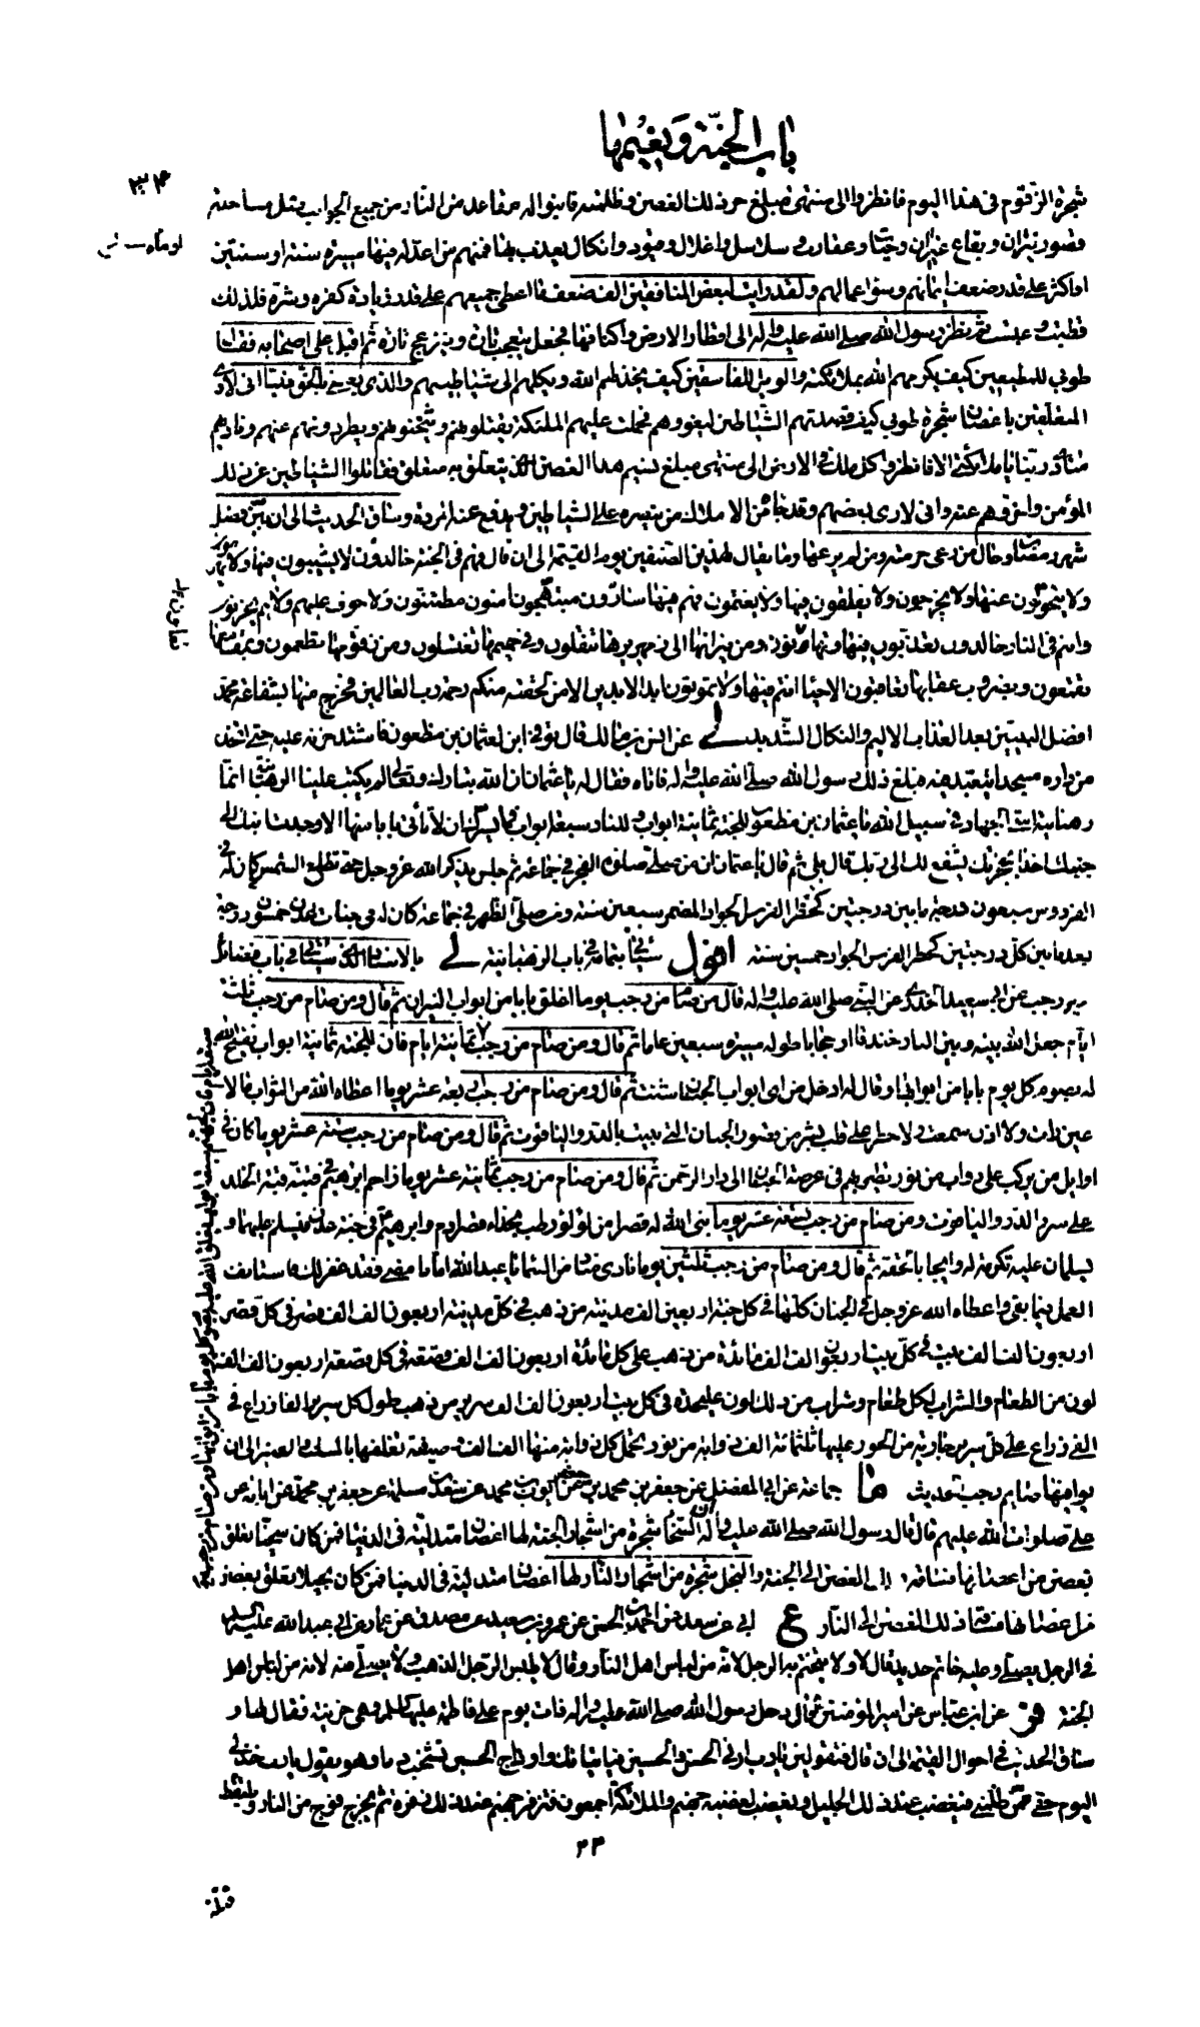 باب الجنّة ونعيمها
٣٣٤
شجرة الزقوم فى هذا اليوم فانظروا الى منتهى مبلغ حر ذلك الغصن وظلمته فابنوا له مقاعد من النار من جميع الجوانب مثل مساحته
قصور نيران وبقاع غيران وحيات وعقارب وسلاسل واغلال وقيود وانكال يعذب بها فمنهم من اعد له فيها مسيرة سنة او سنتين
او اكثر على قدر ضعف ايمانهم وسوء اعمالهم ولقد رايت لبعض المنافقين الف ضعف ما اعطى جميعهم على قدر زيادة كفره وشره فلذلك
قطبت وعبست ثم نظر رسول الله صلى الله عليه واله الى اقطار الارض واكنافها فجعل يتعجب تارة وينزعج تارة ثم اقبل على اصحابه فقال
طوبى للمطيعين كيف يكرمهم الله بملائكته والويل للفاسقين كيف يخذلهم الله ويكلهم الى شياطينهم والذى بعثنى بالحق نبيا انى لارى
المتعلقين باغصان شجرة طوبى كيف قصدتهم الشياطين ليغووهم فحملت عليهم الملئكة يقتلونهم ويثخنونهم ويطردونهم عنهم وناداهم
منادى ربنا يا ملائكتى الا فانظروا كل ملك فى الارض الى منتهى مبلغ نسيم هذا الغصن الذى يتعلق به متعلق فقاتلوا الشياطين عن ذلك
المؤمن واخروهم عنه وانى لارى بعضهم وقد جاءه من الاملاك من ينصره على الشياطين ويدفع عنه المردة وساق الحديث الى ان بين فضل
شهر رمضان وحال من رعى حرمته ومن لم يرعها وما يقال لهذين الصنفين يوم القيمة الى ان قال فهم فى الجنة خالدون لا يشيبون فيها ولا يهرمون
ولا يتحولون عنها ولا يخرجون ولا يقلقون فيها ولا يغتمون فهم فيها سارّون مبتهجون امنون مطمئنون ولا خوف عليهم ولا هم يحزنون
وانتم فى النار خالدون تعذبون فيها وتهانون ومن نيرانها الى زمهريرها تنقلون وفى حميمها تغتسلون ومن زقومها تطعمون وبمقامعها
تقمعون وبضروب عذابها تعاقبون لا احياء انتم فيها ولا تموتون ابد الابدين الا من لحقته منكم رحمة رب العالمين فخرج منها بشفاعة محمد
افضل النبيين بعد العذاب الاليم والنكال الشديد لى عن انس بن مالك قال توفى ابن لعثمان بن مظعون فاشتد حزنه عليه حتى اتخذ
من داره مسجدا يتعبد فيه فبلغ ذلك رسول الله صلى الله عليه واله فاتاه فقال له يا عثمان ان الله تبارك وتعالى لم يكتب علينا الرهبانية انما
رهبانية امتى الجهاد فى سبيل الله يا عثمان بن مظعون للجنة ثمانية ابواب وللنار سبعة ابواب فما يسرك ان لا تأتى بابا منها الا وجدت ابنك الى
جنبك اخذا بحجزتك يشفع لك الى ربك قال بلى ثم قال يا عثمان من صلى صلوة الفجر فى جماعة ثم جلس يذكر الله عز وجل حتى تطلع الشمس كان له فى
الفردوس سبعون درجة ما بين درجتين كحضر الفرس الجواد المضمر سبعين سنة ومن صلى الظهر فى جماعة كان له فى جنات عدن خمسون درجة
بعد ما بين كل درجتين كحضر الفرس الجواد خمسين سنة اقول سيأتى تمامه فى باب الرهبانية لى بالاسناد الذى سيأتى فى باب فضائل
شهر رجب عن ابى سعيد الخدرى عن النبى صلى الله عليه واله قال من صام من رجب يوما اغلق بابا من ابواب النيران ثم قال ومن صام من رجب ثلثة
ايام جعل الله بينه وبين النار خندقا او حجابا طوله مسيرة سبعين عاما ثم قال ومن صام من رجب ثمانية ايام فان للجنة ثمانية ابواب يفتح الله
له بصوم كل يوم بابا من ابوابها وقال له ادخل من اى ابواب الجنان شئت ثم قال ومن صام من رجب اربعة عشر يوما اعطاه الله من الثواب ما لا
عين رات ولا اذن سمعت ولا خطر على قلب بشر من قصور الجنان التى بنيت بالدر والياقوت ثم قال ومن صام من رجب ستة عشر يوما كان فى
اوايل من يركب على دواب من نور تطير بهم فى عرصة الجنان الى دار الرحمن ثم قال ومن صام من رجب ثمانية عشر يوما زاحم ابرهيم فى قبته فى قبة الخلد
على سرر الدر والياقوت ومن صام من رجب تسعة عشر يوما بنى الله له قصرا من لؤلؤ رطب بحذاء قصر ادم وابرهيم فى جنة عدن فيسلم عليهما و
يسلمان عليه تكرمة له وايجابا لحقه ثم قال ومن صام من رجب ثلثين يوما نادى مناد من السماء يا عبد الله اما ما مضى فقد غفر لك فاستانف
العمل فيما بقى واعطاه الله عز وجل فى الجنان كلها فى كل جنة اربعين الف مدينة من ذهب فى كل مدينة اربعون الف الف قصر فى كل قصر
اربعون الف الف بيت فى كل بيت اربعون الف الف مائدة من ذهب على كل مائدة اربعون الف الف قصعة فى كل قصعة اربعون الف الف
لون من الطعام والشراب لكل طعام وشراب من ذلك لون على حدة فى كل بيت اربعون الف الف سرير من ذهب طول كل سرير الفا ذراع فى
الفى ذراع على كل سرير جارية من الحور عليها ثلثمائة الف ذوابة من نور تحمل كل ذوابة منها الف الف وصيفة تغلفها بالمسك والعنبر الى ان
يوافيها صايم رجب الحديث ما جماعة عن ابى المفضل عن جعفر بن محمد بن جعفر عن ايوب بن محمد عن سعيد بن مسلمة عن جعفر بن محمد عن ابائه عن
على صلوات الله عليهم قال قال رسول الله صلى الله عليه واله ان السخاء شجرة من اشجار الجنة لها اغصان متدلية فى الدنيا فمن كان سخيا تعلق
بغصن من اغصانها فساقه ذلك الغصن الى الجنة والبخل شجرة من اشجار النار لها اغصان متدلية فى الدنيا فمن كان بخيلا تعلق بغصن
من اغصانها فساقه ذلك الغصن الى النار ع ابى عن سعد عن احمد بن الحسن عن عمرو بن سعيد عن مصدق عن عمار عن ابى عبد الله عليه السلام
فى الرجل يصلى وعليه خاتم حديد قال لا ولا يتختم به الرجل لانه من لباس اهل النار وقال لا يلبس الرجل الذهب ولا يصلى فيه لانه من لباس اهل
الجنة فر عن ابن عباس عن امير المؤمنين قال دخل رسول الله صلى الله عليه واله ذات يوم على فاطمة عليها السلام وهى حزينة فقال لها و
ساق الحديث فى احوال القيمة الى ان قال فتقولين يا رب ارنى الحسن والحسين فياتيانك واوداج الحسين تشخب دما وهو يقول يا رب خذ لى
اليوم حقى ممن ظلمنى فيغضب عند ذلك الجليل ويغضب لغضبه جهنم والملائكة اجمعون فتزفر جهنم عند ذلك زفرة ثم يخرج فوج من النار ويلتقط
٣٣
قتلة